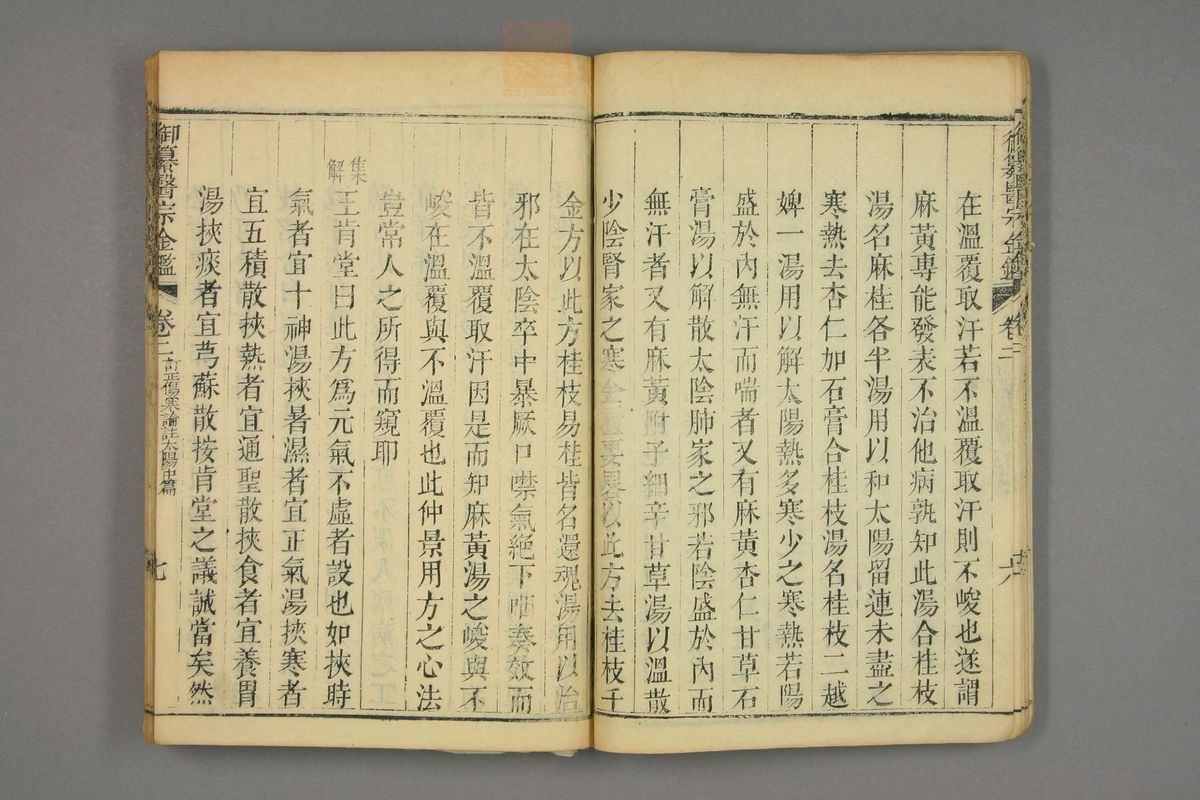 御纂醫宗金鑑
卷二
六
在溫覆取汗若不溫覆取汗則不峻也遂謂
麻黃專能發表不治他病孰知此湯合桂枝
湯名麻桂各半湯用以和太陽留連未盡之
寒熱去杏仁加石膏合桂枝湯名桂枝二越
婢一湯用以解太陽熱多寒少之寒熱若陽
盛於內無汗而喘者又有麻黃杏仁甘草石
膏湯以解散太陰肺家之邪若陰盛於內而
無汗者又有麻黃附子細辛甘草湯以溫散
少陰腎家之寒金匱要畧以此方去桂枝千
金方以此方桂枝易桂皆名還魂湯用以治
邪在太陰卒中暴厥口噤氣絕下咽奏效而
皆不溫覆取汗因是而知麻黃湯之峻與不
峻在溫覆與不溫覆也此仲景用方之心法
豈常人之所得而窺耶
集解
王肯堂曰此方為元氣不虛者設也如挾時
氣者宜十神湯挾暑濕者宜正氣湯挾寒者
宜五積散挾熱者宜通聖散挾食者宜養胃
湯挾痰者宜芎蘇散按肯堂之議誠當矣然
御纂醫宗金鑑
卷二
訂正傷寒論註太陽中篇
七